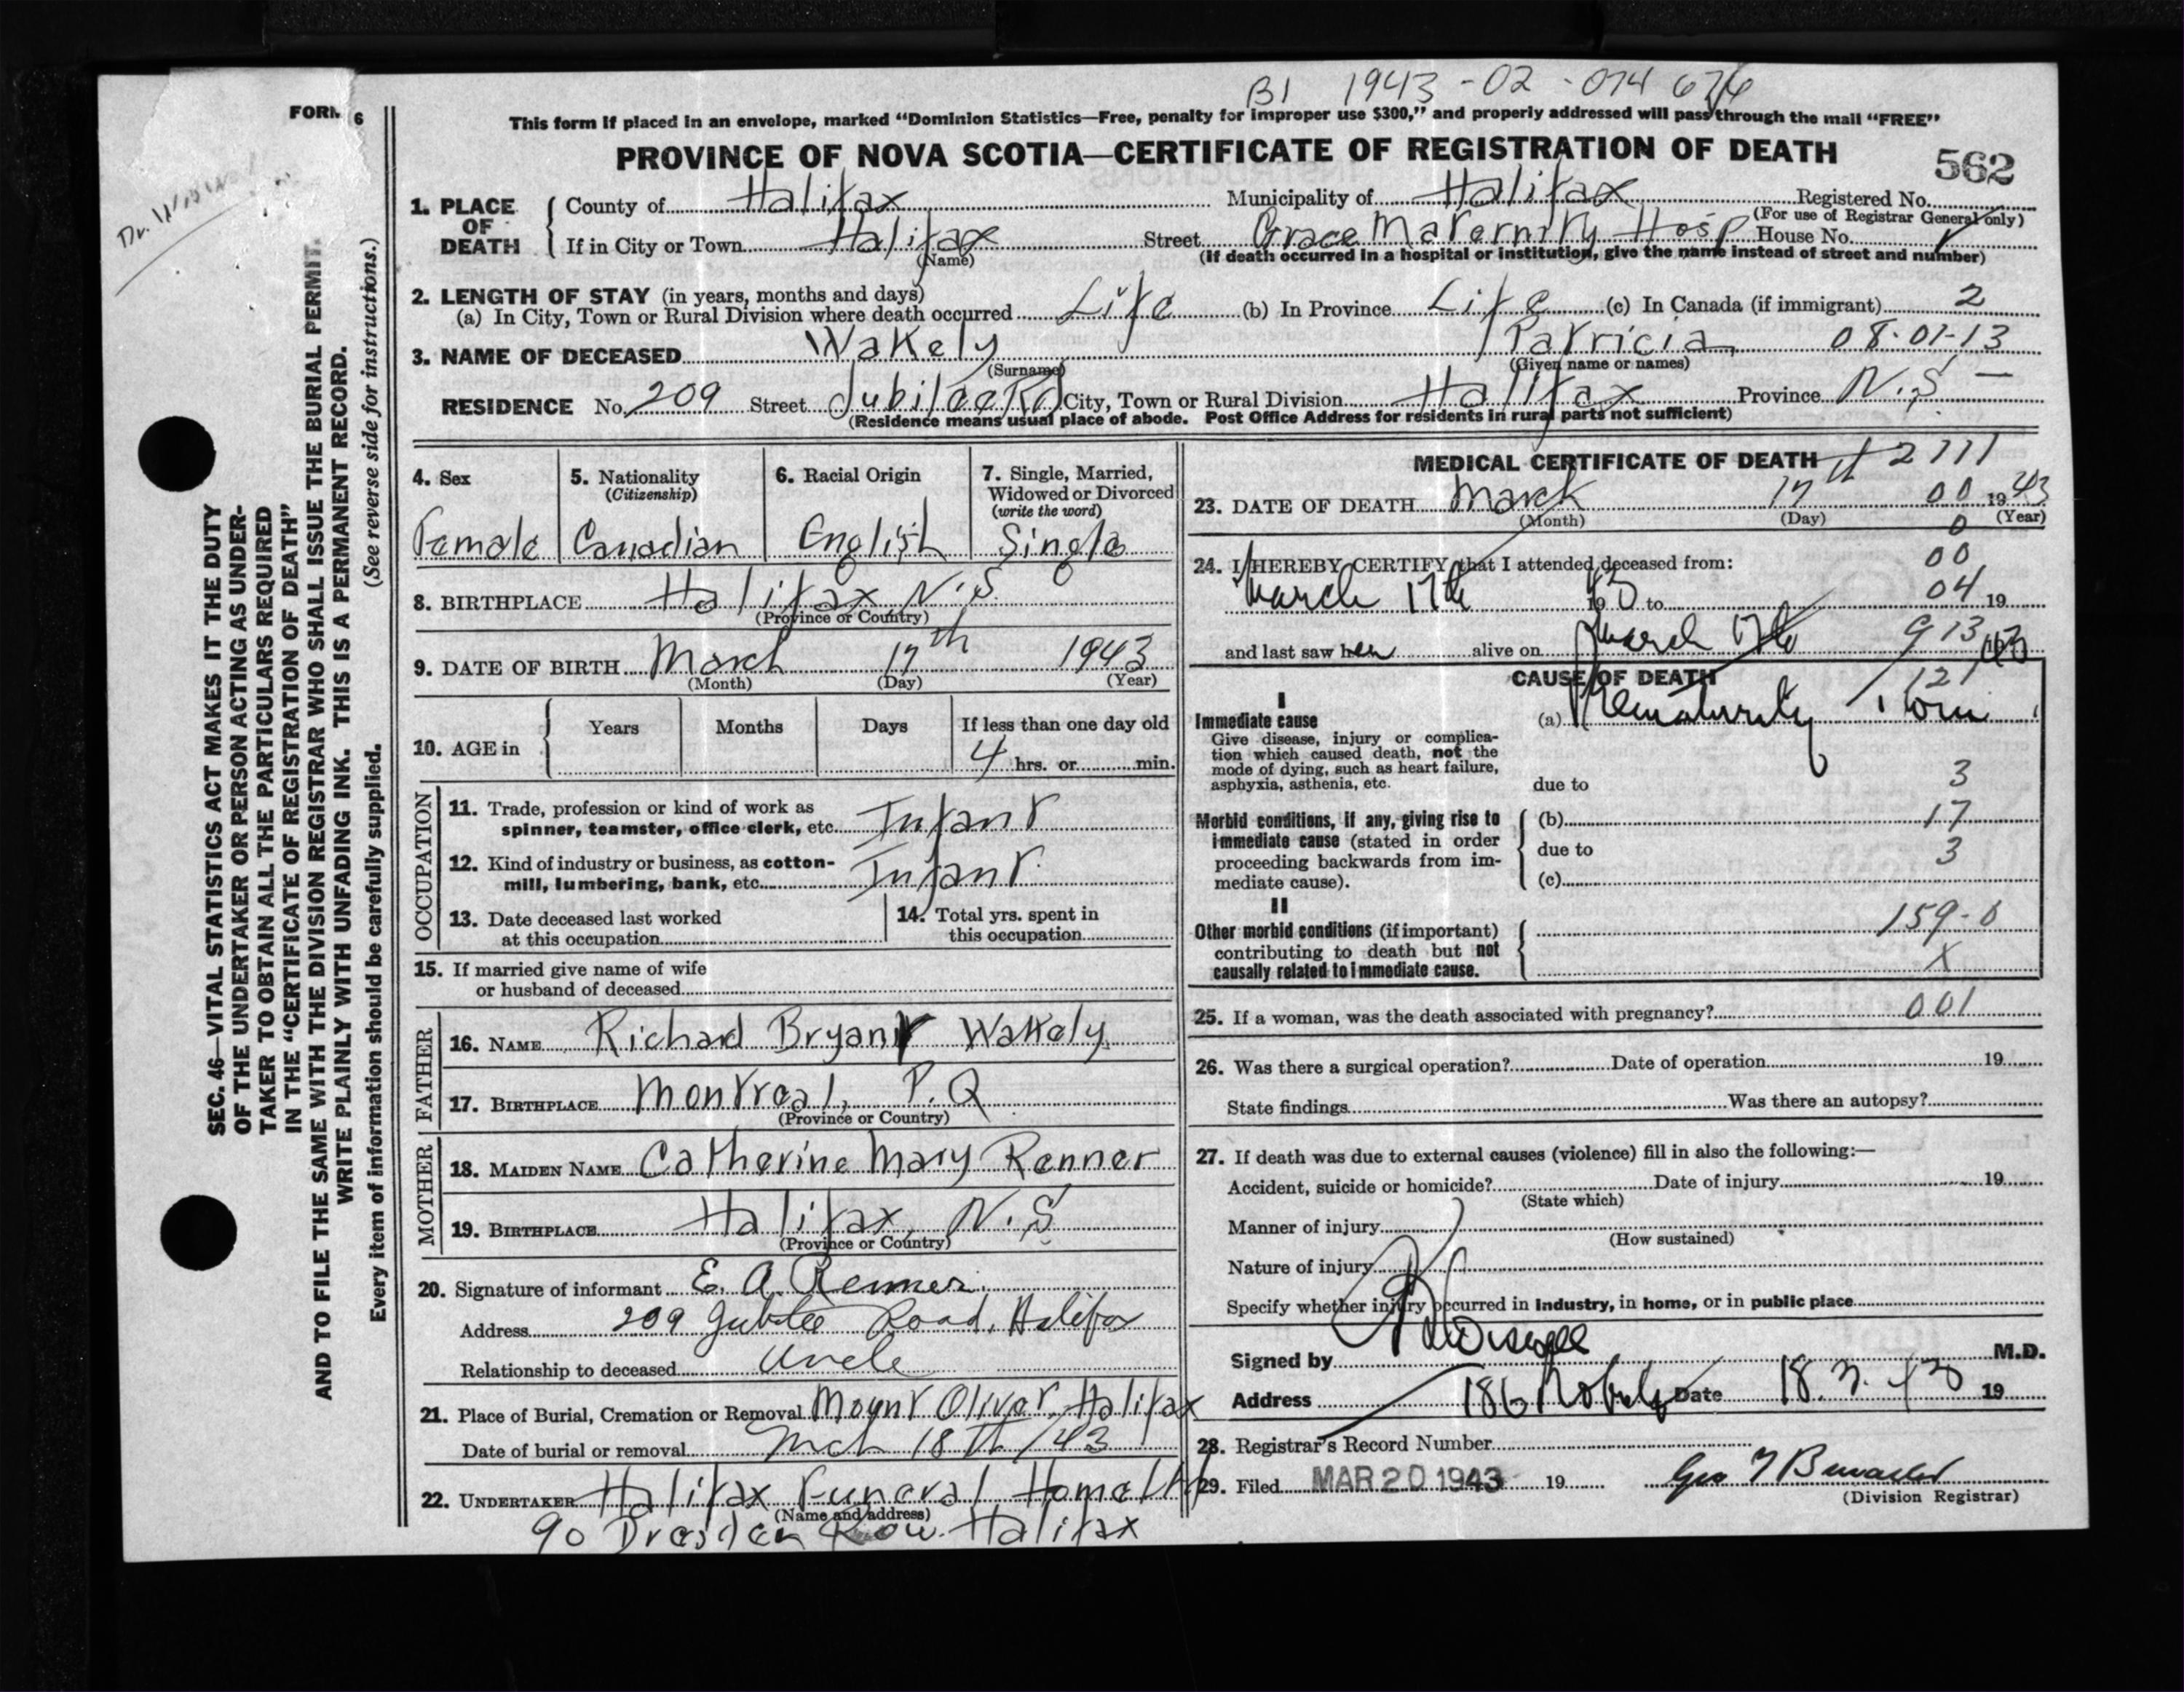 B1 1943-02-074676
FORM 6
This form if placed in an envelope, marked "Dominion Statistics—Free, penalty for improper use $300," and properly addressed will pass through the mail "FREE"
PROVINCE OF NOVA SCOTIA—CERTIFICATE OF REGISTRATION OF DEATH
562
1. PLACE OF DEATH
County of Halifax Municipality of Halifax Registered No.
(For use of Registrar General only)
If in City or Town Halifax Street Grace Maternity Hosp House No.
(Name) (If death occurred in a hospital or institution, give the name instead of street and number)
2. LENGTH OF STAY (in years, months and days)
(a) In City, Town or Rural Division where death occurred Life (b) In Province Life (c) In Canada (if immigrant) 2
3. NAME OF DECEASED Wakely Patricia 08-01-13
(Surname) (Given name or names)
RESIDENCE No. 209 Street Jubilee Rd City, Town or Rural Division Halifax Province N.S —
(Residence means usual place of abode. Post Office Address for residents in rural parts not sufficient)
SEC. 46—VITAL STATISTICS ACT MAKES IT THE DUTY
OF THE UNDERTAKER OR PERSON ACTING AS UNDER-
TAKER TO OBTAIN ALL THE PARTICULARS REQUIRED
IN THE "CERTIFICATE OF REGISTRATION OF DEATH"
AND TO FILE THE SAME WITH THE DIVISION REGISTRAR WHO SHALL ISSUE THE BURIAL PERMIT.
WRITE PLAINLY WITH UNFADING INK. THIS IS A PERMANENT RECORD.
Every item of information should be carefully supplied. (See reverse side for instructions.)
4. Sex
Female
5. Nationality
(Citizenship)
Canadian
6. Racial Origin
English
7. Single, Married,
Widowed or Divorced
(write the word)
Single
8. BIRTHPLACE Halifax N.S.
(Province or Country)
9. DATE OF BIRTH March 17th 1943
(Month) (Day) (Year)
10. AGE in
Years Months Days If less than one day old
4 hrs. or min.
OCCUPATION
11. Trade, profession or kind of work as
spinner, teamster, office clerk, etc. Infant
12. Kind of industry or business, as cotton-
mill, lumbering, bank, etc. Infant
13. Date deceased last worked
at this occupation
14. Total yrs. spent in
this occupation
15. If married give name of wife
or husband of deceased
FATHER
16. NAME Richard Bryant Wakely
17. BIRTHPLACE Montreal, P.Q
(Province or Country)
MOTHER
18. MAIDEN NAME Catherine Mary Renner
19. BIRTHPLACE Halifax, N.S
(Province or Country)
20. Signature of informant E. A. Renner
Address 209 Jubilee Road, Halifax
Relationship to deceased Uncle
21. Place of Burial, Cremation or Removal Mount Olivet, Halifax
Date of burial or removal Mch 18th/43
22. UNDERTAKER Halifax Funeral Home
(Name and address)
90 Dresden Row. Halifax
MEDICAL CERTIFICATE OF DEATH 2111
23. DATE OF DEATH March 17th 00 1943
(Month) (Day) (Year)
0
24. I HEREBY CERTIFY that I attended deceased from: 00
March 17th 19 to 04 19
and last saw her alive on March 17th 913
CAUSE OF DEATH 121
I
Immediate cause
Give disease, injury or complica-
tion which caused death, not the
mode of dying, such as heart failure,
asphyxia, asthenia, etc.
(a) Prematurity
due to 3
Morbid conditions, if any, giving rise to
immediate cause (stated in order
proceeding backwards from im-
mediate cause).
(b) 17
due to 3
(c)
II
Other morbid conditions (if important)
contributing to death but not
causally related to immediate cause.
159-0
X
25. If a woman, was the death associated with pregnancy? 001
26. Was there a surgical operation? Date of operation 19
State findings Was there an autopsy?
27. If death was due to external causes (violence) fill in also the following:—
Accident, suicide or homicide? Date of injury 19
(State which)
Manner of injury
(How sustained)
Nature of injury
Specify whether injury occurred in Industry, in home, or in public place
Signed by M.D.
Address 186 Date 18.3.43 19
28. Registrar's Record Number
29. Filed MAR 20 1943 19
(Division Registrar)